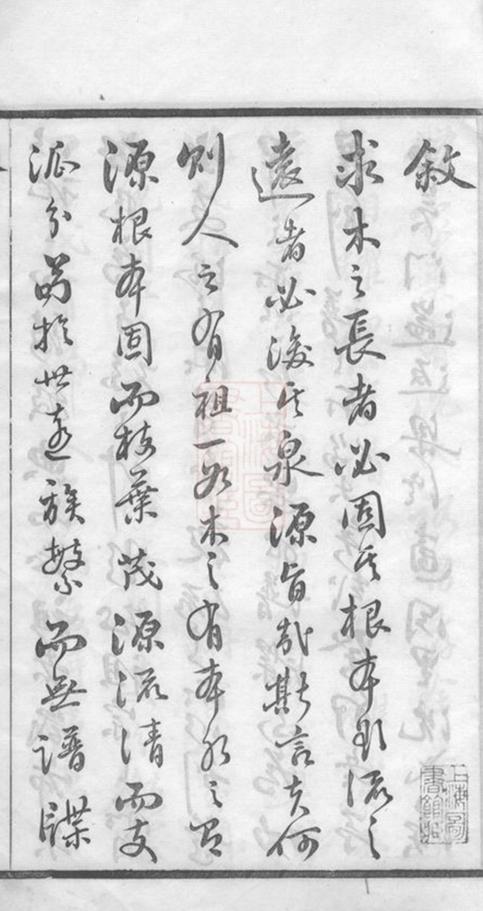 敘
求木之長者必固其根本欲流之
遠者必浚其泉源旨哉斯言夫何
則人之有祖一如木之有本水之有
源根本固而枝葉茂源流清而支
派分苟於世遠族繁而無譜牒
上海圖
書館藏